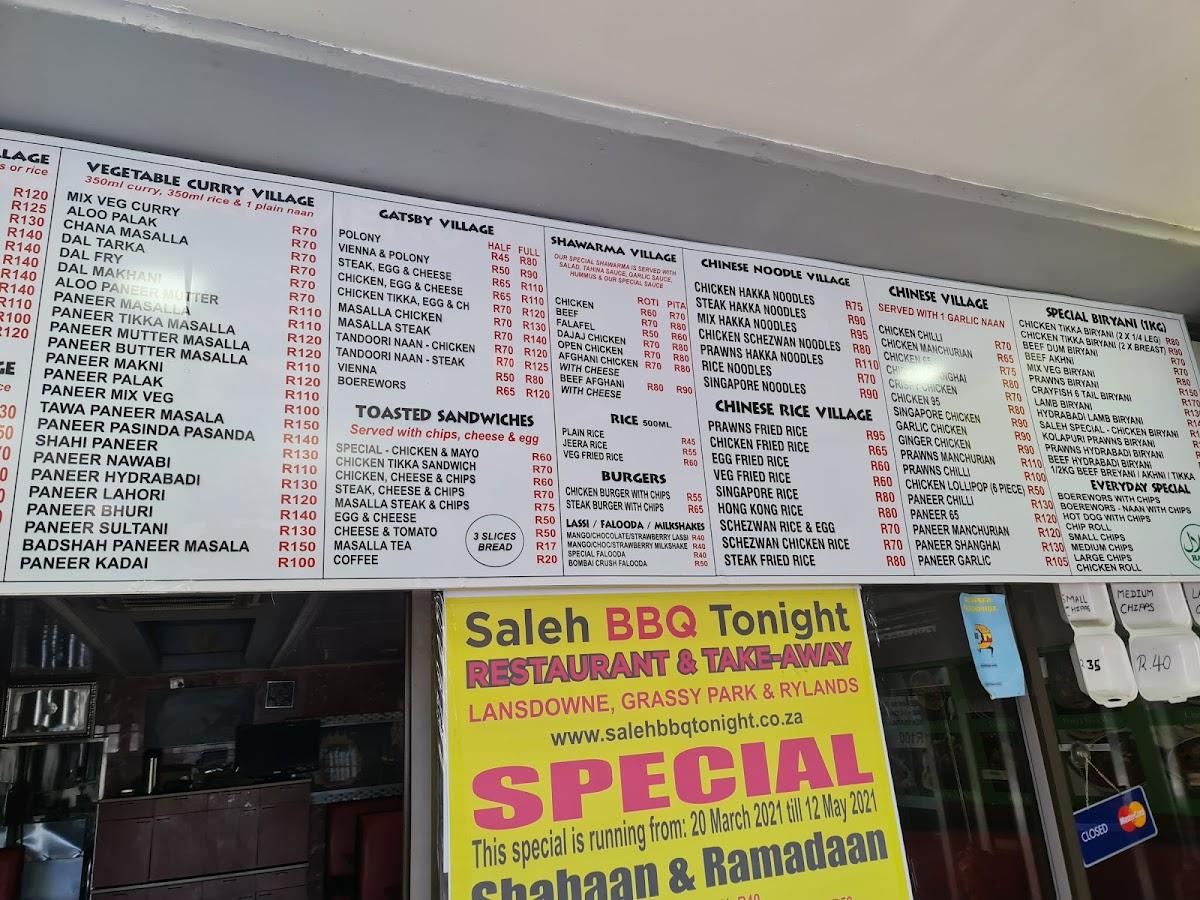 LLAGE
s or rice
R120
R125
R130
R140
R140
R140
R140
R110
R100
R120
VEGETABLE CURRY VILLAGE
350ml curry, 350ml rice & 1 plain naan
MIX VEG CURRY R70
ALOO PALAK R70
CHANA MASALLA R70
DAL TARKA R70
DAL FRY R70
DAL MAKHANI R70
ALOO PANEER MUTTER R110
PANEER MASALLA R110
PANEER TIKKA MASALLA R110
PANEER MUTTER MASALLA R120
PANEER BUTTER MASALLA R120
PANEER MAKNI R110
PANEER PALAK R110
PANEER MIX VEG R100
TAWA PANEER MASALA R150
PANEER PASINDA PASANDA R140
SHAHI PANEER R130
PANEER NAWABI R110
PANEER HYDRABADI R130
PANEER LAHORI R120
PANEER BHURI R140
PANEER SULTANI R130
BADSHAH PANEER MASALA R150
PANEER KADAI R100
GATSBY VILLAGE
HALF FULL
POLONY R45 R80
VIENNA & POLONY R50 R90
STEAK, EGG & CHEESE R65 R110
CHICKEN, EGG & CHEESE R65 R110
CHICKEN TIKKA, EGG & CH R70 R120
MASALLA CHICKEN R70 R130
MASALLA STEAK R70 R140
TANDOORI NAAN - CHICKEN R70 R120
TANDOORI NAAN - STEAK R70 R125
VIENNA R50 R80
BOEREWORS R65 R120
TOASTED SANDWICHES
Served with chips, cheese & egg
SPECIAL - CHICKEN & MAYO R60
CHICKEN TIKKA SANDWICH R70
CHICKEN, CHEESE & CHIPS R60
STEAK, CHEESE & CHIPS R70
MASALLA STEAK & CHIPS R75
EGG & CHEESE R50
CHEESE & TOMATO R50
MASALLA TEA R17
COFFEE R20
3 SLICES
BREAD
SHAWARMA VILLAGE
OUR SPECIAL SHAWARMA IS SERVED WITH
SALAD, TAHINA SAUCE, GARLIC SAUCE,
HUMMUS & OUR SPECIAL SAUCE
ROTI PITA
CHICKEN R60 R70
BEEF R70 R80
FALAFEL R50 R60
DAJAJ CHICKEN R70 R80
OPEN CHICKEN R70 R80
AFGHANI CHICKEN R70 R80
WITH CHEESE
BEEF AFGHANI R80 R90
WITH CHEESE
RICE 500ML
PLAIN RICE R45
JEERA RICE R55
VEG FRIED RICE R60
BURGERS
CHICKEN BURGER WITH CHIPS R55
STEAK BURGER WITH CHIPS R65
LASSI / FALOODA / MILKSHAKES
MANGO/CHOCOLATE/STRAWBERRY LASSI R40
MANGO/CHOC/STRAWBERRY MILKSHAKE R40
SPECIAL FALOODA R40
BOMBAI CRUSH FALOODA R50
CHINESE NOODLE VILLAGE
CHICKEN HAKKA NOODLES R75
STEAK HAKKA NOODLES R90
MIX HAKKA NOODLES R95
CHICKEN SCHEZWAN NOODLES R80
PRAWNS HAKKA NOODLES R110
RICE NOODLES R70
SINGAPORE NOODLES R90
CHINESE RICE VILLAGE
PRAWNS FRIED RICE R95
CHICKEN FRIED RICE R65
EGG FRIED RICE R60
VEG FRIED RICE R60
SINGAPORE RICE R80
HONG KONG RICE R80
SCHEZWAN RICE & EGG R70
SCHEZWAN CHICKEN RICE R70
STEAK FRIED RICE R80
CHINESE VILLAGE
SERVED WITH 1 GARLIC NAAN
CHICKEN CHILLI R70
CHICKEN MANCHURIAN R65
CHICKEN 65 R75
CHICKEN R80
CHICKEN 95 R70
SINGAPORE CHICKEN R80
GARLIC CHICKEN R90
GINGER CHICKEN R90
PRAWNS MANCHURIAN R110
PRAWNS CHILLI R100
CHICKEN LOLLIPOP (6 PIECE) R50
PANEER CHILLI R130
PANEER 65 R120
PANEER MANCHURIAN R120
PANEER SHANGHAI R130
PANEER GARLIC R105
SPECIAL BIRYANI (1KG)
CHICKEN TIKKA BIRYANI (2 X 1/4 LEG) R80
CHICKEN TIKKA BIRYANI (2 X BREAST) R90
BEEF DUM BIRYANI
BEEF AKHNI
MIX VEG BIRYANI
PRAWNS BIRYANI
CRAYFISH 6 TAIL BIRYANI
LAMB BIRYANI
HYDRABADI LAMB BIRYANI
SALEH SPECIAL - CHICKEN BIRYANI
KOLAPURI PRAWNS BIRYANI
PRAWNS HYDRABADI BIRYANI
BEEF HYDRABADI BIRYANI
1/2KG BEEF BREYANI / AKHNI / TIKKA
EVERYDAY SPECIAL
BOEREWORS WITH CHIPS
BOEREWORS - NAAN WITH CHIPS
HOT DOG WITH CHIPS
CHIP ROLL
SMALL CHIPS
MEDIUM CHIPS
LARGE CHIPS
CHICKEN ROLL
Saleh BBQ Tonight
RESTAURANT & TAKE-AWAY
LANSDOWNE, GRASSY PARK & RYLANDS
www.salehbbqtonight.co.za
SPECIAL
This special is running from: 20 March 2021 till 12 May 2021
Shabaan & Ramadaan
SMALL
CHIPPS
35
MEDIUM
CHIPPS
R.40
CLOSED
MasterCard